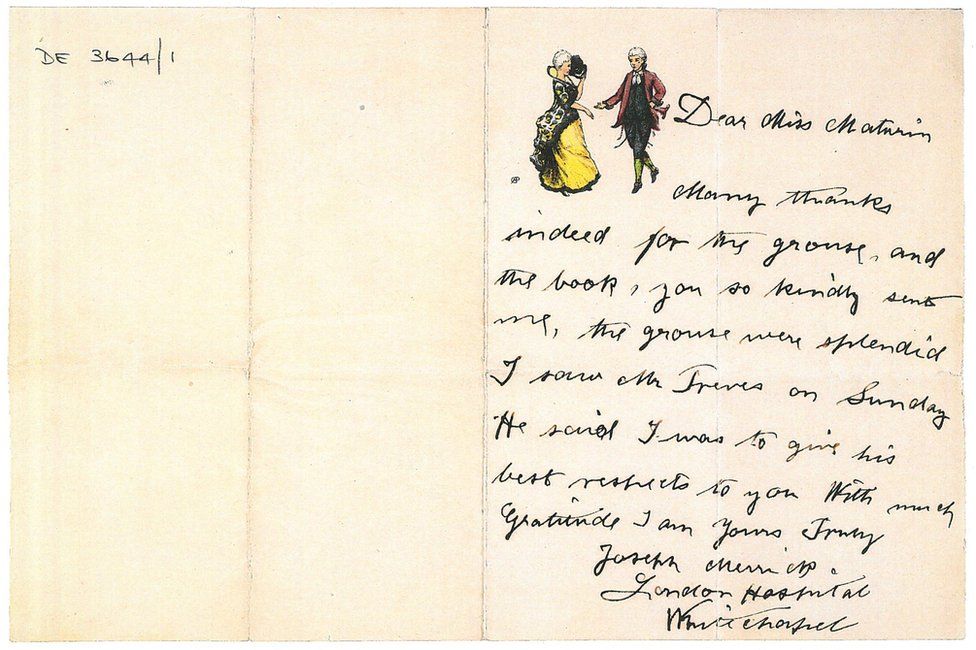 DE 3644/1
Dear Miss Maturin
Many thanks
indeed for the grouse, and
the book, you so kindly sent
me, the grouse were splendid
I saw Mr Treves on Sunday
He said I was to give his
best respects to you With much
Gratitude I am Yours Truly
Joseph Merrick.
London Hospital
Whitechapel